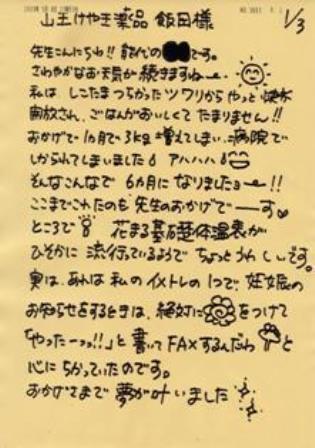 山王けやき薬品 飯田様
1/3
先生こんにちわ!! 能代の です。
さわやかなお天気が続きますねー
私は、しこたまつらかったツワリからやっと
開放され、ごはんがおいしくて たまりません!!
おかげで1ヵ月で3kg増えてしまい、病院で
しかられてしまいました アハハハ
そんなこんなで 6ヵ月に なりましたョー!!
ここまでこれたのも先生のおかげでーす
ところで 花まる基礎体温表が
ひそかに 流行っているようで ちょっとうれしいです。
実は、あれは 私の イメトレの 1つで、妊娠の
お知らせをするときは、絶対に をつけて
「やったーっっ!!」と 書いて FAXするんだわ と
心に ちかっていたのです。
おかげさまで 夢が叶いました